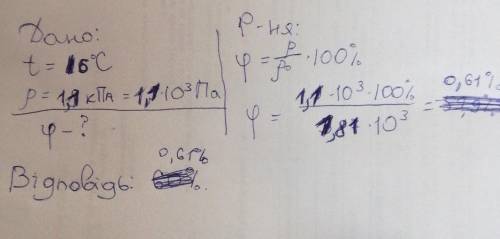 Дано:
t = 16°C
p = 1,1 кПа = 1,1·10³ Па
φ – ?
Р-ня:
φ = p/p₀ · 100%
φ = 1,1·10³·100% / 1,81·10³ = 0,61%
0,61%
Відповідь: